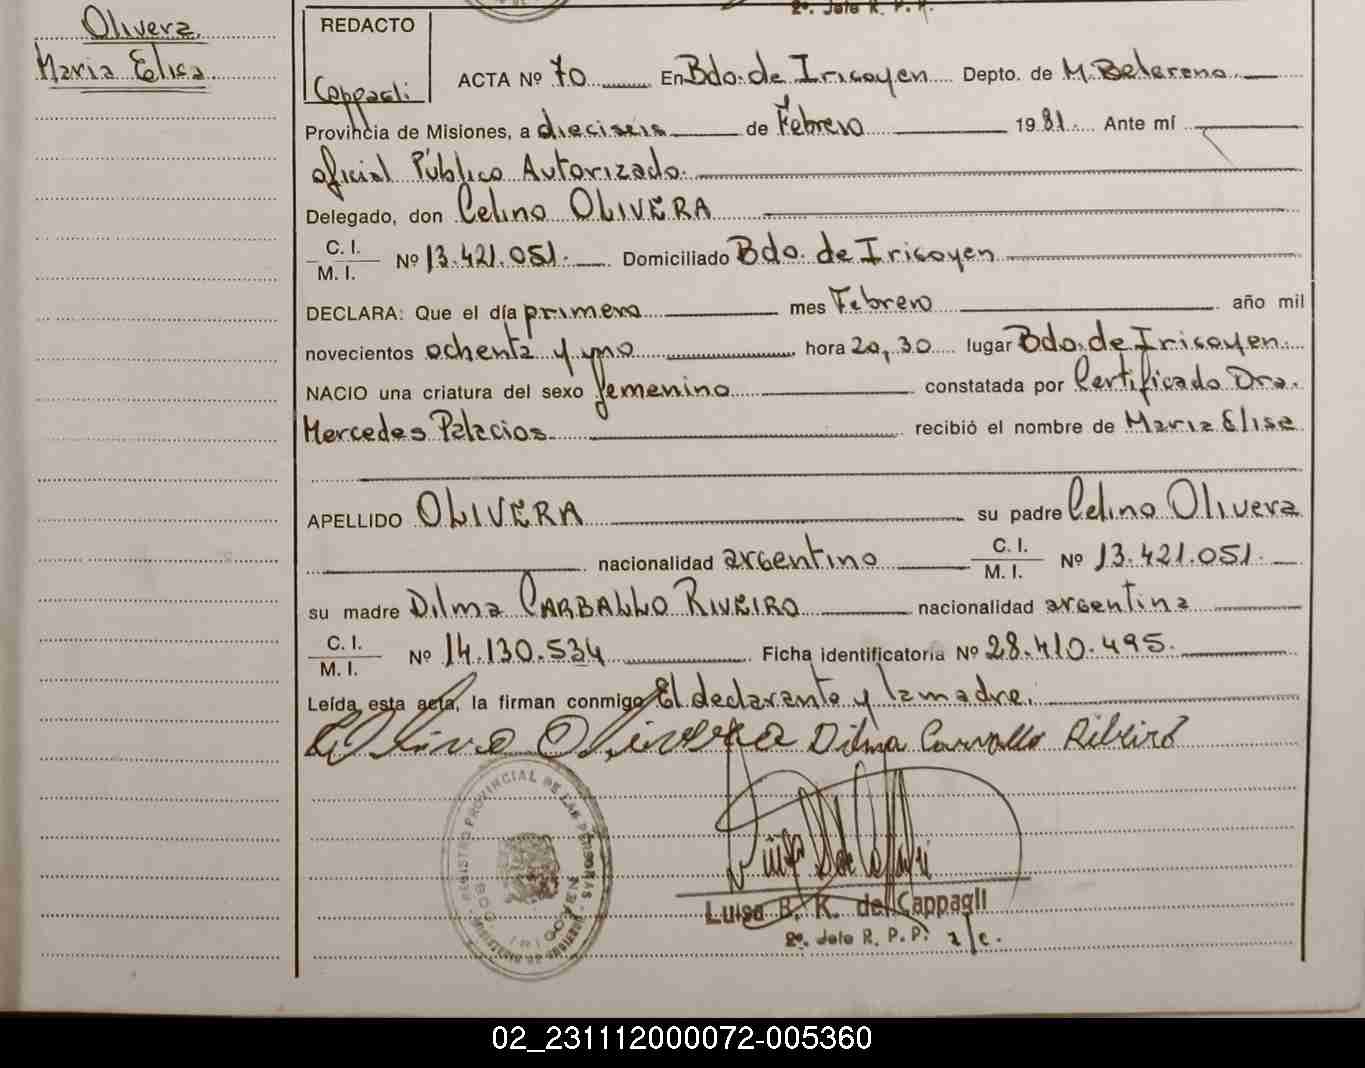 2º. Jefe R. P. P.
Olivera
Maria Elisa
REDACTO
Cappagli
ACTA Nº 70 En Bdo. de Irigoyen Depto. de M. Belgrano
Provincia de Misiones, a dieciseis de Febrero 1981. Ante mí
oficial Público Autorizado.
Delegado, don Celino OLIVERA
C. I.
M. I. Nº 13.421.051. Domiciliado Bdo. de Irigoyen
DECLARA: Que el día primero mes Febrero año mil
novecientos ochenta y uno hora 20,30 lugar Bdo. de Irigoyen
NACIO una criatura del sexo femenino constatada por Certificado Dra.
Mercedes Palacios recibió el nombre de Maria Elisa
APELLIDO OLIVERA su padre Celino Olivera
nacionalidad argentino C. I. M. I. Nº 13.421.051.
su madre Dilma CARBALLO RIVEIRO nacionalidad argentina
C. I.
M. I. Nº 14.130.534 Ficha identificatoria Nº 28.410.495.
Leída esta acta, la firman conmigo El declarante y la madre.
Celino Olivera Dilma Carvallo Ribeiro
REGISTRO PROVINCIAL DE LAS PERSONAS
Luisa B. K. de Cappagli
2º. Jefe R. P. P. a/c.
02_231112000072-005360